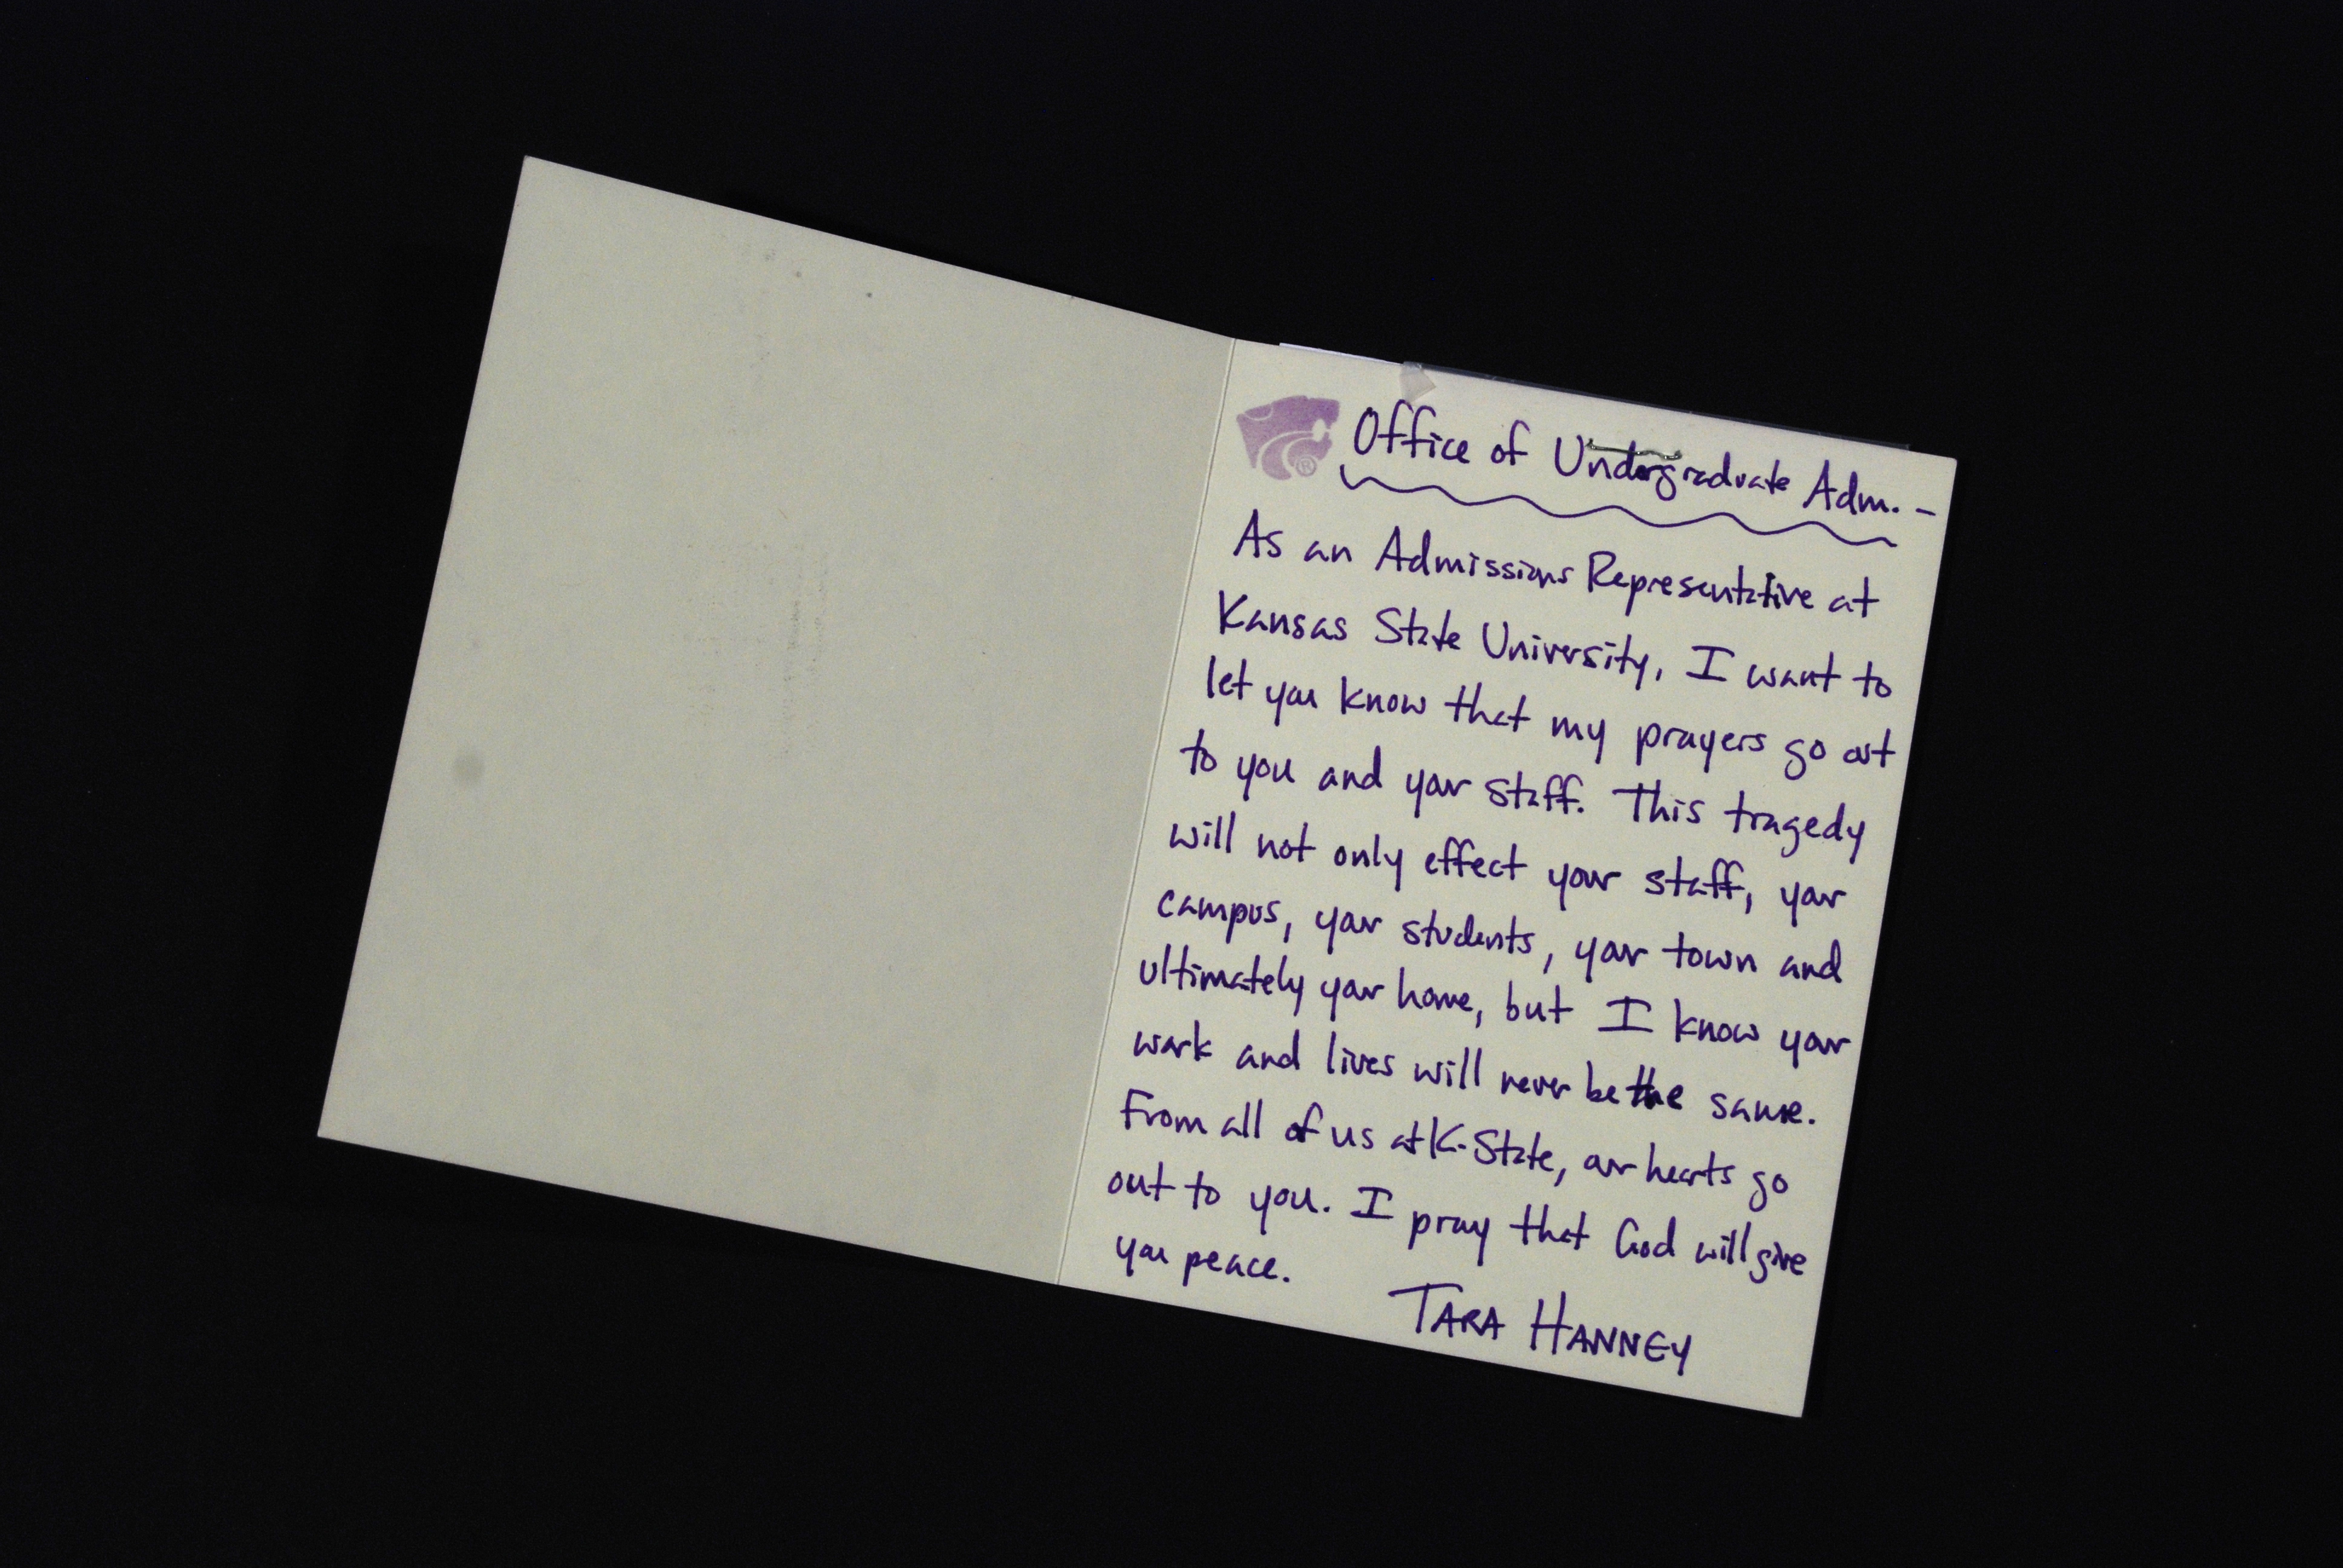 Office of Undergraduate Adm. -
As an Admissions Representative at
Kansas State University, I want to
let you know that my prayers go out
to you and your staff. This tragedy
will not only effect your staff, your
campus, your students, your town and
ultimately your home, but I know your
work and lives will never be the same.
From all of us at K-State, our hearts go
out to you. I pray that God will give
you peace.
TARA HANNEY